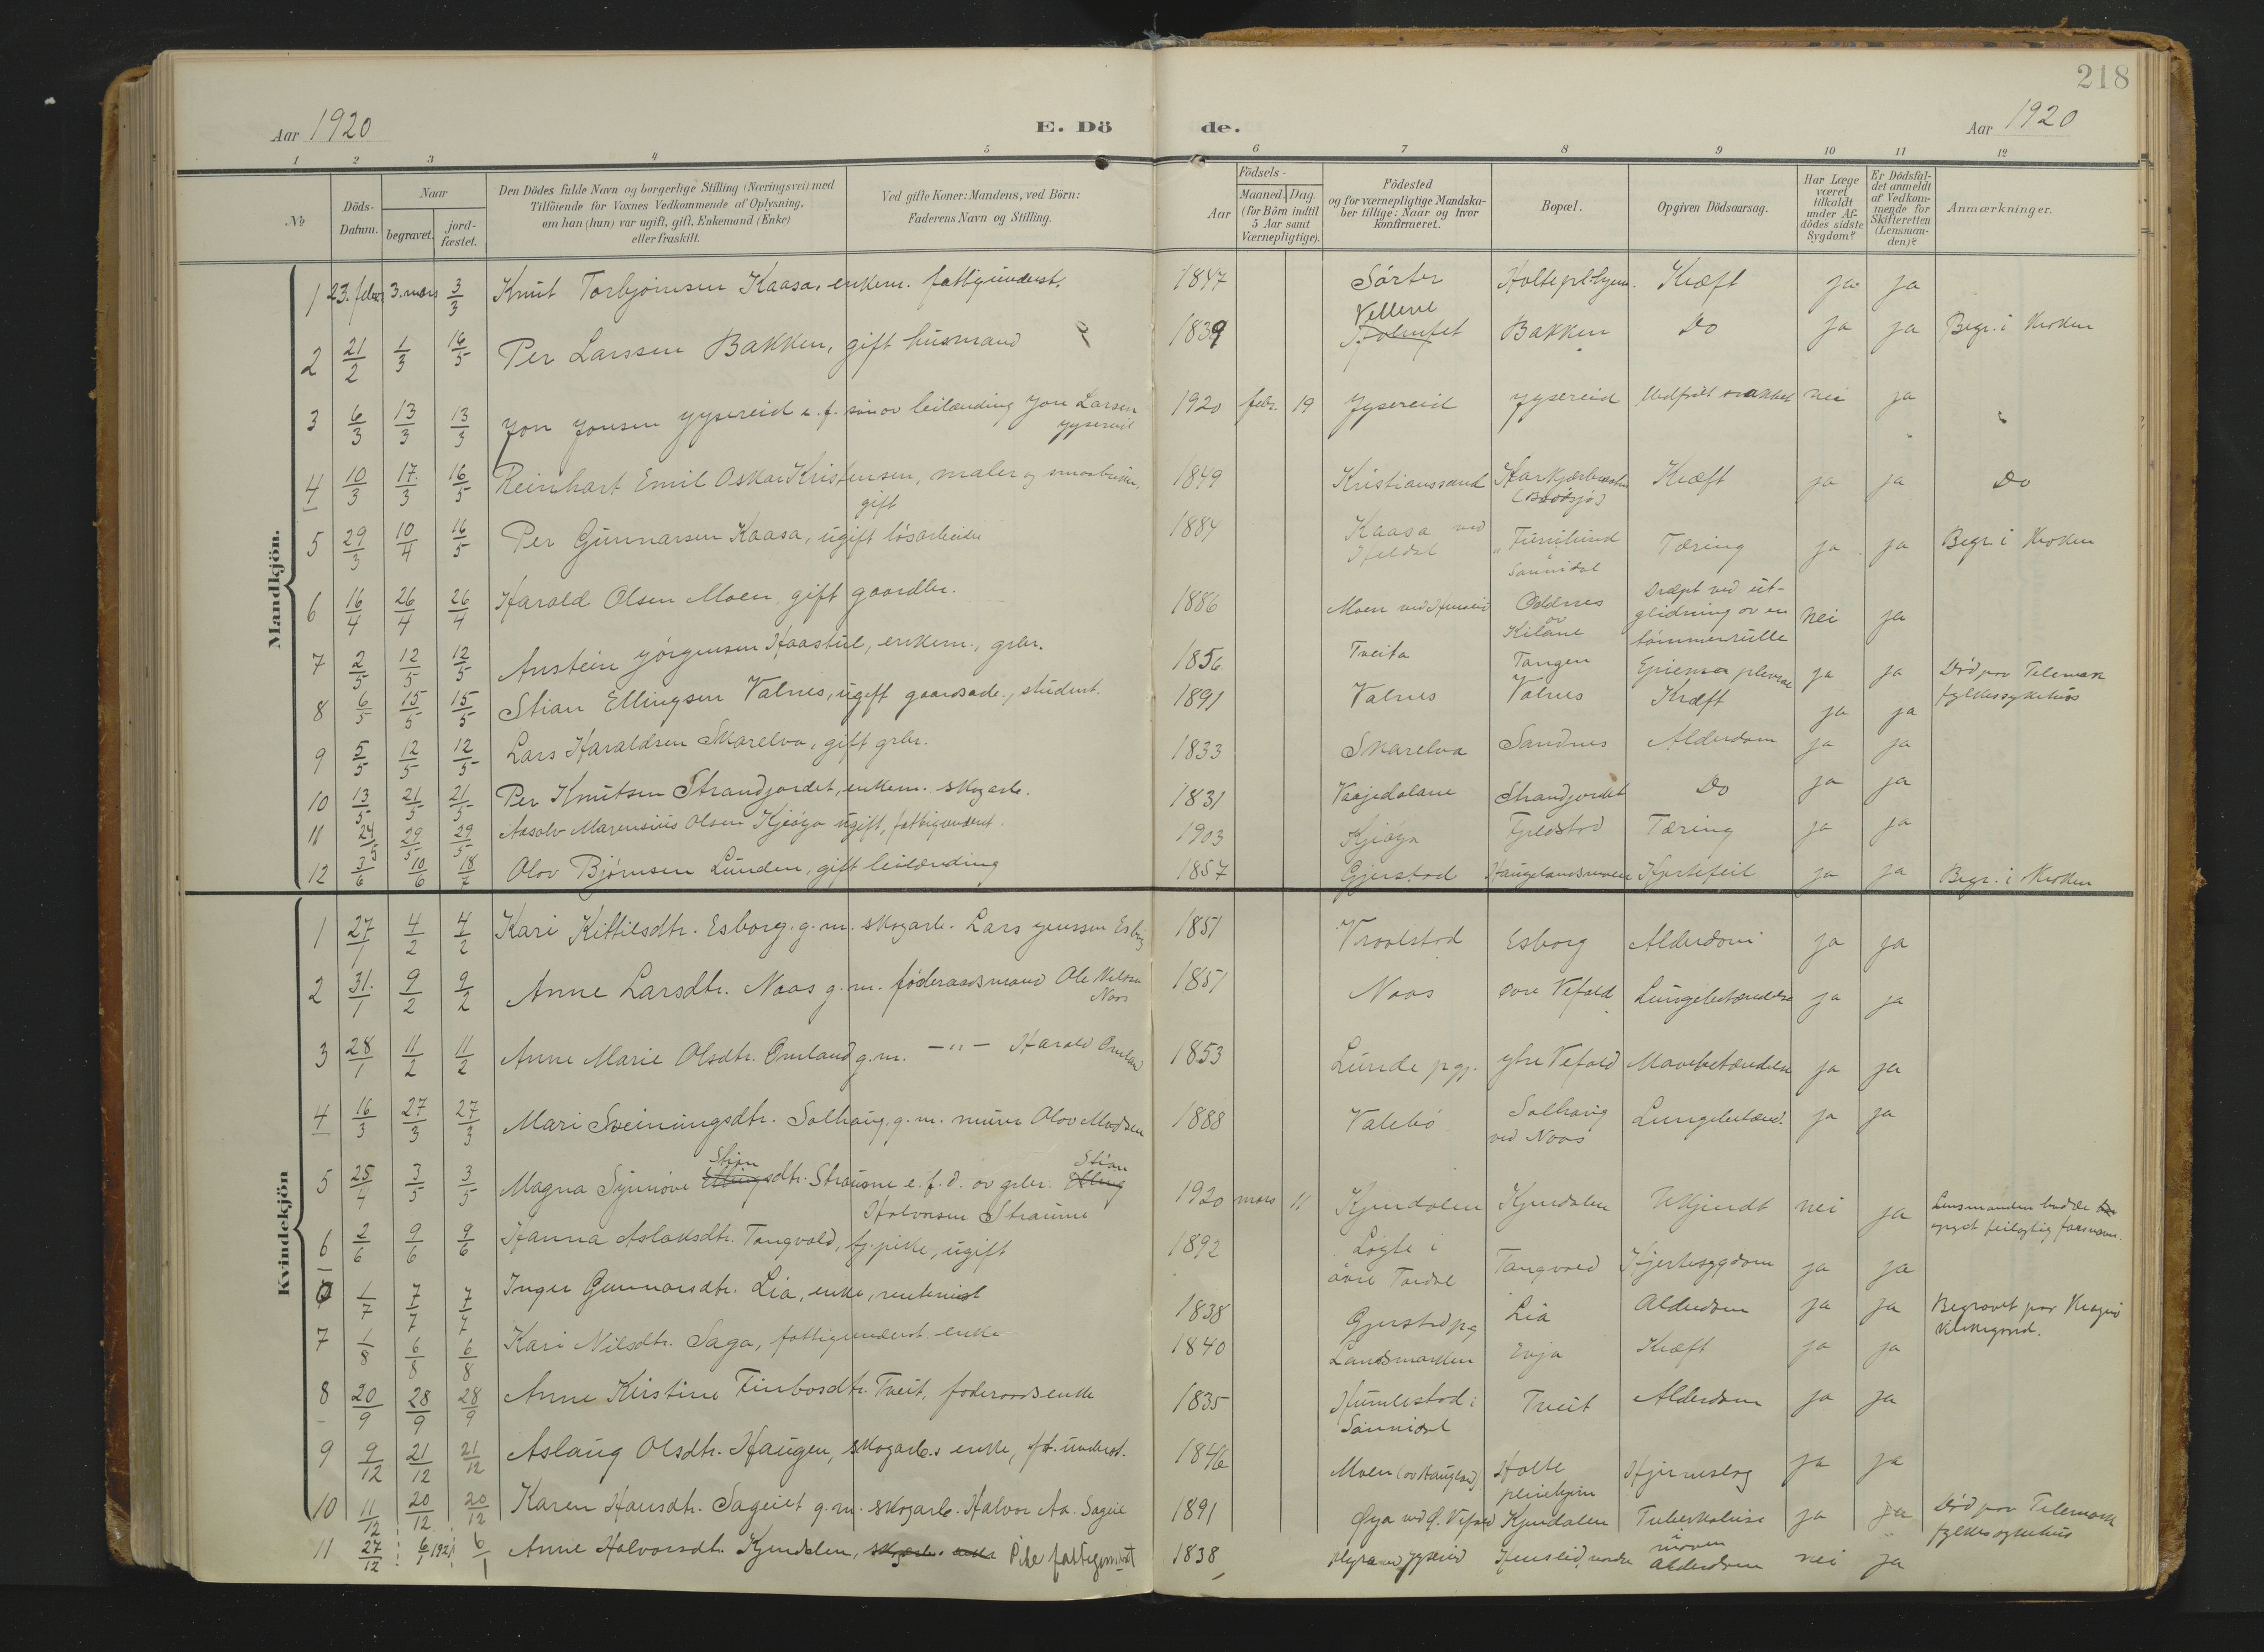 218
Aar 1920
E. Dö
de.
Aar 1920
1 2 3 4 5 6 7 8 9 10 11 12
No
Döds-Datum.
Naar
begravet.
jord-fæstet.
Den Dödes fulde Navn og borgerlige Stilling (Næringsvei) med
Tilföiende for Voxnes Vedkommende af Oplysning,
om han (hun) var ugift, gift, Enkemand (Enke)
eller fraskilt.
Ved gifte Koner: Mandens, ved Börn:
Faderens Navn og Stilling.
Födsels-
Aar
Maaned. Dag.
(for Börn indtil
5 Aar samt
Værnepligtige).
Födested
og for værnepligtige Mandska-
ber tillige: Naar og hvor
konfirmeret.
Bopæl.
Opgiven Dödsaarsag.
Har Læge
været
tilkaldt
under Af-
dödes sidste
Sygdom?
Er Dödsfal-
det anmeldt
af Vedkom-
mende for
Skifteretten
(Lensman-
den)?
Anmærkninger.
Mandkjön.
1 23. febr 3. mars 3/3 Knut Torbjørnsen Kaasa, enkem. fattigunderst. 1847 Sørter Holte pl.hjem. Kræft ja ja
2 21/2 1/3 16/5 Per Larssen Bakken, gift husmand 1839 Vellene Bakken Do ja ja Begr. i Kroken
3 6/3 13/3 13/3 Jon Jonsen Jysereid e. f. søn av leilænding Jon Larsen
Jysereid 1920 febr. 19 Jysereid Jysereid Medfødt svakhet nei ja
4 10/3 17/3 16/5 Reinhart Emil Oskar Kristensen, maler og smaabruker,
gift 1849 Kristianssand Kræft ja ja Do
5 29/3 10/4 16/5 Per Gunnarsen Kaasa, ugift løsarbeider 1884 Kaasa ved Furulund i Sannidal Tæring ja ja Begr. i Kroken
6 16/4 26/4 26/4 Harald Olsen Moen, gift gaardbr. 1886 Moen ved Oddnes av Kilane Dræpt ved ut-
glidning av en
tømmerrulle nei ja
7 2/5 12/5 12/5 Anstein Jørgensen Haastul, enkem., grbr. 1856 Tveita Tangen pleurae ja ja Død paa Telemark
fylkessykehus
8 6/5 15/5 15/5 Stian Ellingsen Valnes, ugift gaardsarb., student. 1891 Valnes Valnes Kræft ja ja
9 5/5 12/5 12/5 Lars Haraldsen Skarelva, gift grbr. 1833 Skarelva Sandnes Alderdom ja ja
10 13/5 21/5 21/5 Per Knutsen Strandjordet, enkem. skogarb. 1831 Vaajedalane Strandjordet Do ja ja
11 24/5 29/5 29/5 Aasolv Marensius Olsen Kjiøya ugift, fattigunderst. 1903 Kjiøya Tæring ja ja
12 3/6 10/6 18/7 Olov Bjørnsen Lunden, gift leilænding 1857 Gjerstad Haugelandsmoen Hjertefeil ja ja Begr. i Kroken
Kvindekjön
1 27/1 4/2 4/2 Kari Kittilsdtr. Esborg. g. m. skogarb. Lars Jenssen Esborg 1851 Vraalstad Esborg Alderdom ja ja
2 31/1 9/2 9/2 Anne Larsdtr. Naas g. m. føderaadsmand Ole Nilsen
Naas 1851 Naas øvre Vefald Lungebetændelse ja ja
3 28/1 11/2 11/2 Anne Marie Olsdtr. Omland g. m. —"— Harald Omland 1853 Lunde pgj. ytre Vefald Mavebetændelse ja ja
4 16/3 27/3 27/3 Mari Sveinungsdtr. Solhaug, g. m. murer Olov Madsen 1888 Valebø Solhaug
ved Naas Lungebetænd. ja ja
5 25/4 3/5 3/5 Magna Synnøve Stian Ellingsdtr. Straume e. f. d. av grbr. Stian Elling
Halvorsen Straume 1920 mars 11 Kjendalen Kjendalen Ukjendt nei ja Lensmanden hadde
opgit feilagtig farsnavn.
6 2/6 9/6 9/6 Hanna Aslaksdtr. Tangvald, tj. pike, ugift 1892 Løgte i
øvre Tørdal Tangvald Hjertesygdom ja ja
1/7 7/7 7/7 Inger Gunnarsdtr. Lia, enke, rentenist 1838 Gjerstad pg Lia Alderdom ja ja Begravet paa Kragerø
kirkegaard.
7 1/8 6/8 6/8 Kari Nilsdtr. Saga, fattigunderst. enke 1840 Landsmarken Evja Kræft ja ja
8 20/9 28/9 28/9 Anne Kirstine Finbosdtr. Tveit, føderaadsenke 1835 Humlestad i
Sannidal Tveit Alderdom ja ja
9 9/12 21/12 21/12 Aslaug Olsdtr. Haugen, skogarb.s enke, ft. underst. 1846 Moen (av Haugland) Holte
pleiehjem Hjerneslag ja ja
10 11/12 20/12 20/12 Karen Hansdtr. Sageiet g. m. skogarb. Halvor Aa. Sageie 1891 Øya ved Ø. Vefald Kjendalen Tuberkulose i
maven ja ja Død paa Telemark
fylkessykehus
11 27/12 6/1 1921 6/1 Anne Halvorsdt. Kjendalen, skogarb. enke Pike fattigunderst 1838 Myra ved Jysereid Henseid, nordre Alderdom nei ja